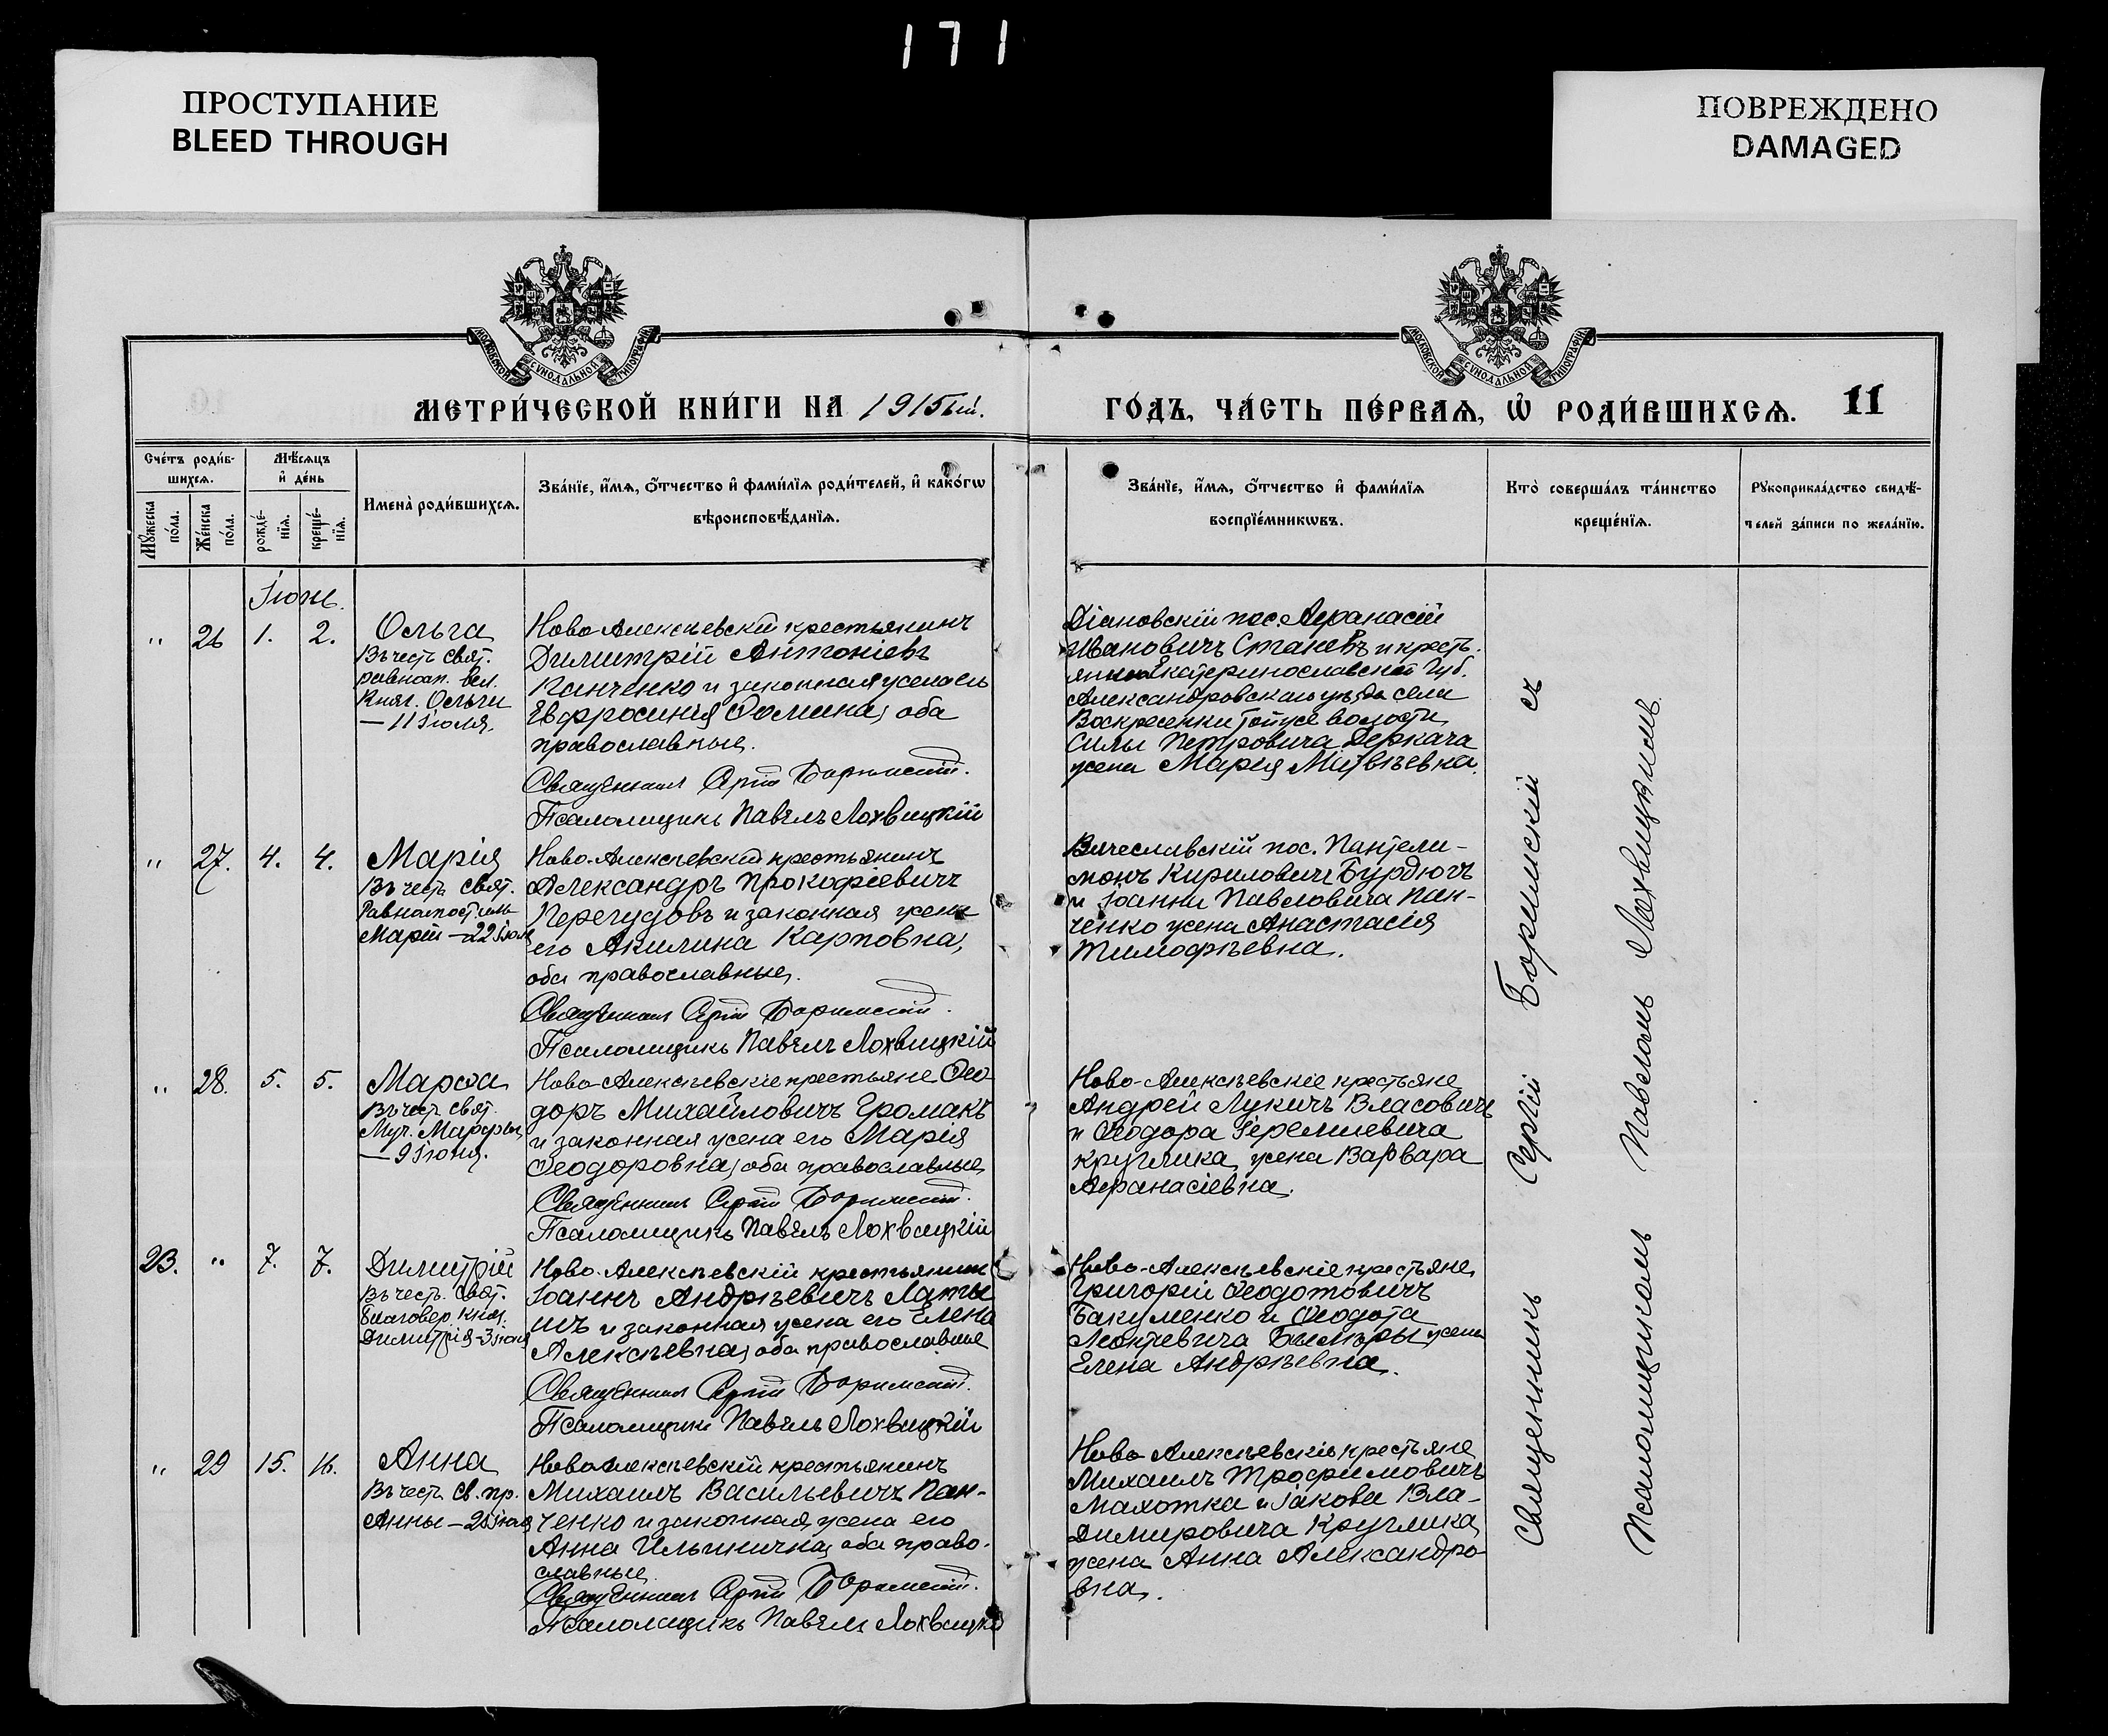 171
ПРОСТУПАНИЕ
BLEED THROUGH
ПОВРЕЖДЕНО
DAMAGED
МОСКОВСКОЙ СѴНОДАЛЬНОЙ ТИПОГРАФІИ
МОСКОВСКОЙ СѴНОДАЛЬНОЙ ТИПОГРАФІИ
МЕТРИ́ЧЕСКОЙ КНИ́ГИ НА 1915ый.
ГО́ДЪ, ЧА́СТЬ ПЕ́РВАѦ, Ѡ҆ РОДИ́ВШИХСѦ. 11
Сче́тъ роди́в-
шихсѧ.
Мѣ́сѧцъ
и҆ де́нь
Мꙋ́жеска
по́ла.
Же́нска
по́ла.
рожде́-
нїѧ.
креще́-
нїѧ.
Имена̀ роди́вшихсѧ.
Зва́нїе, и҆́мѧ, ѻ҆́тчество и҆ фами́лїѧ роди́телей, и҆ како́гѡ
вѣроисповѣ́данїѧ.
Зва́нїе, и҆́мѧ, ѻ҆́тчество и҆ фами́лїѧ
воспрїе́мникѡвъ.
Кто̀ соверша́лъ та́инство
креще́нїѧ.
Рꙋкоприкла́дство свидѣ́-
телей за́писи по жела́нїю.
Іюнь.
" 26 1. 2.
Ольга
Въ честь свят.
равноап. вел.
Княг. Ольги
— 11 Іюля.
Ново-Алексѣевскій крестьянинъ
Димитрій Антоніевъ
Панченко и законная жена его
Евфросинія Ѳомина, оба
православные.
Священникъ Сергій Боримскій.
Псаломщикъ Павелъ Лохвицкій
Діановскій пос. Аѳанасій
Ивановичъ и кресть-
Екатеринославской Губ.
Александровскаго уѣзда села
Воскресенки волости
Силы Петровича Деркача
жена Марія Матвѣевна.
" 27. 4. 4.
Марія
Въ честь свят.
Равноапостольн.
Маріи — 22 Іюля
Ново-Алексѣевскій крестьянинъ
Александръ Прокофіевичъ
Перегудовъ и законная жена
его Акилина Карповна,
оба православные.
Священникъ Сергій Боримскій.
Псаломщикъ Павелъ Лохвицкій
Вячеславскій пос. Пантели-
монъ Кириловичъ Бурдюгъ
и Іоанна Павловича Пан-
ченко жена Анастасія
Тимофѣевна.
" 28. 5. 5.
Марѳа
Въ честь свят.
Муч. Марфы
— 9 Іюня.
Ново-Алексѣевскіе крестьяне Ѳео-
доръ Михайловичъ Громакъ
и законная жена его Марія
Ѳеодоровна, оба православные
Священникъ Сергій Боримскій.
Псаломщикъ Павелъ Лохвицкій
Ново-Алексѣевскіе крестьяне
Андрей Лукичъ Власовичъ
и Ѳеодора Іереміевича
Круглика жена Варвара
Аѳанасіевна.
23. " 7. 7.
Димитрій
Въ честь свят.
Благовер. Княз.
Димитрія - 3 Іюня
Ново-Алексѣевскій крестьянинъ
Іоаннъ Андрѣевичъ Латы
шъ и законная жена его Елена
Алексѣевна, оба православные
Священникъ Сергій Боримскій.
Псаломщикъ Павелъ Лохвицкій
Ново-Алексѣевскіе крестьяне
Григорій Ѳеодотовичъ
Бакуменко и Ѳеодота
Леонтевича жена
Елена Андрѣевна.
" 29 15. 16.
Анна
Въ честь св. пр.
Анны — 25 Іюля
Ново-Алексѣевскій крестьянинъ
Михаилъ Васильевичъ Пан-
ченко и законная жена его
Анна Ильинична, оба право-
славные
Священникъ Сергій Боримскій.
Псаломщикъ Павелъ Лохвицкій
Ново-Алексѣевскіе крестьяне
Михаилъ Трофимовичъ
Махотка и Іакова Вла-
димировича Круглика
жена Анна Александро-
вна.
Священникъ Сергій Боримскій съ
Псаломщикомъ Павломъ Лохвицкимъ